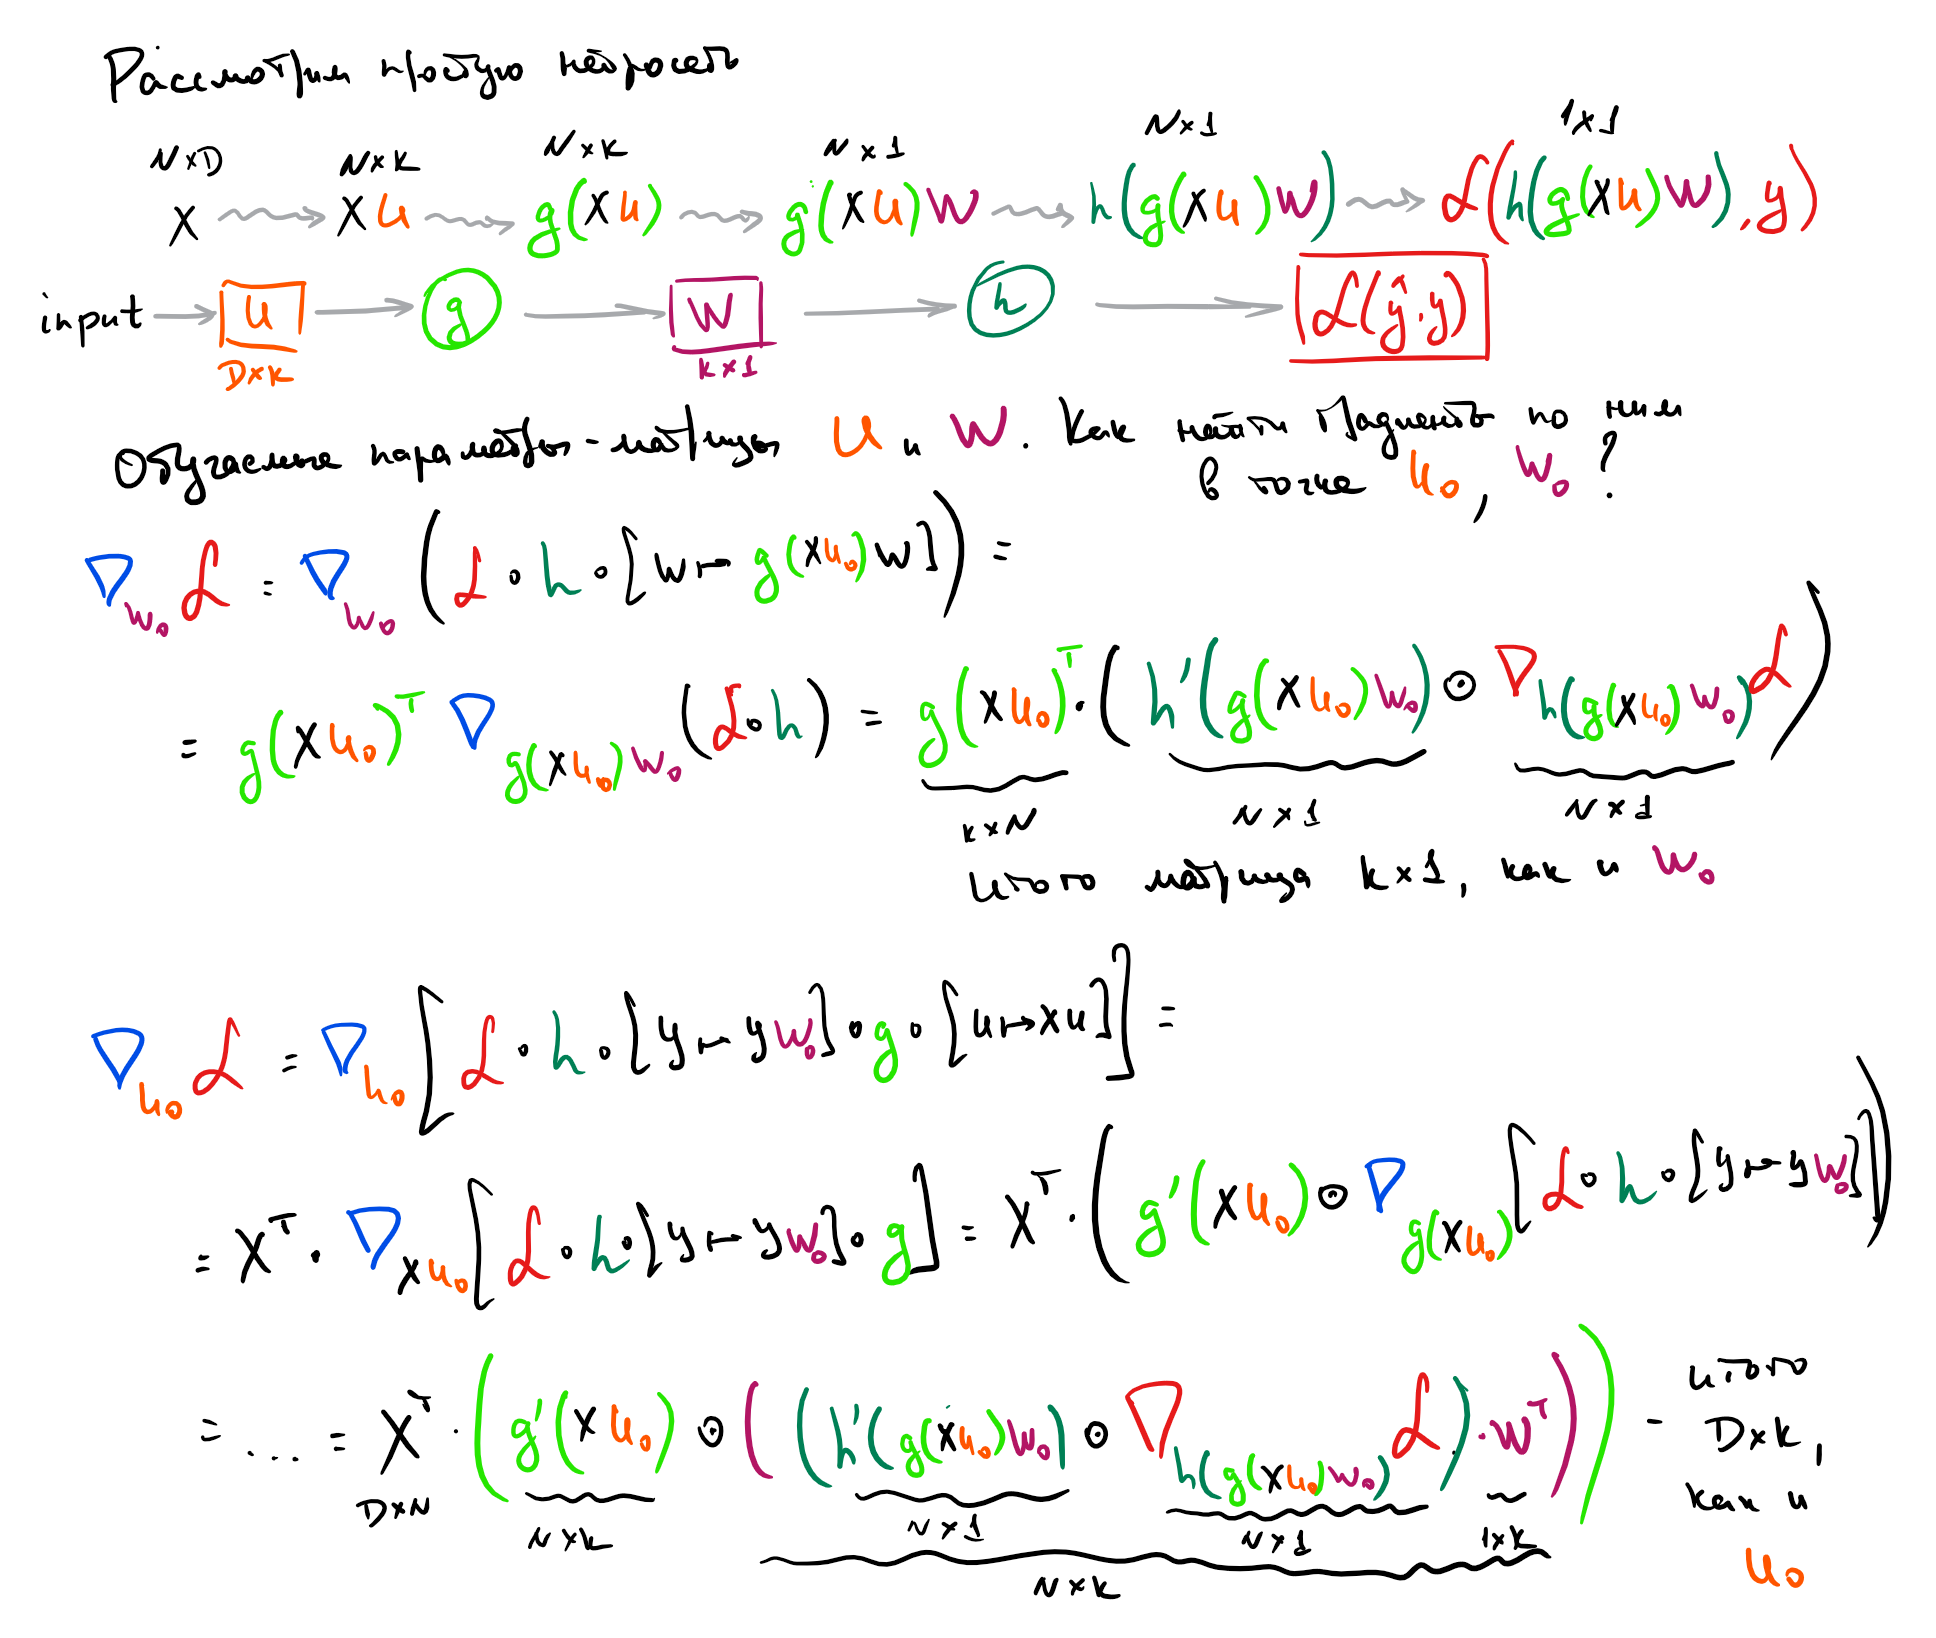 Рассмотрим простую нейросеть
N×D N×K N×K N×1 N×1 1×1
X XU g(XU) g(XU)W h(g(XU)W) ℒ(h(g(XU)W), y)
input → U → g → W → h → ℒ(ŷ, y)
D×K K×1
Обучаемые параметры - матрицы U и W. Как найти градиенты по ним
в точке U₀, W₀ ?
∇_{W₀} ℒ = ∇_{W₀} (ℒ ∘ h ∘ [W ↦ g(XU₀)W]) =
= g(XU₀)ᵀ ∇_{g(XU₀)W₀} (ℒ∘h) = g(XU₀)ᵀ · (h'(g(XU₀)W₀) ⊙ ∇_{h(g(XU₀)W₀)} ℒ)
K×N N×1 N×1
итого матрица K×1, как и W₀
∇_{U₀} ℒ = ∇_{U₀} [ℒ ∘ h ∘ [y ↦ yW₀] ∘ g ∘ [U ↦ XU]] =
= Xᵀ · ∇_{XU₀} [ℒ ∘ h ∘ [y ↦ yW₀] ∘ g] = Xᵀ · (g'(XU₀) ⊙ ∇_{g(XU₀)} [ℒ ∘ h ∘ [y ↦ yW₀]])
= ... = Xᵀ · (g'(XU₀) ⊙ ((h'(g(XU₀)W₀) ⊙ ∇_{h(g(XU₀)W₀)} ℒ) · Wᵀ)) - итого
D×K,
как и
U₀
D×N N×K N×1 N×1 1×K
N×K